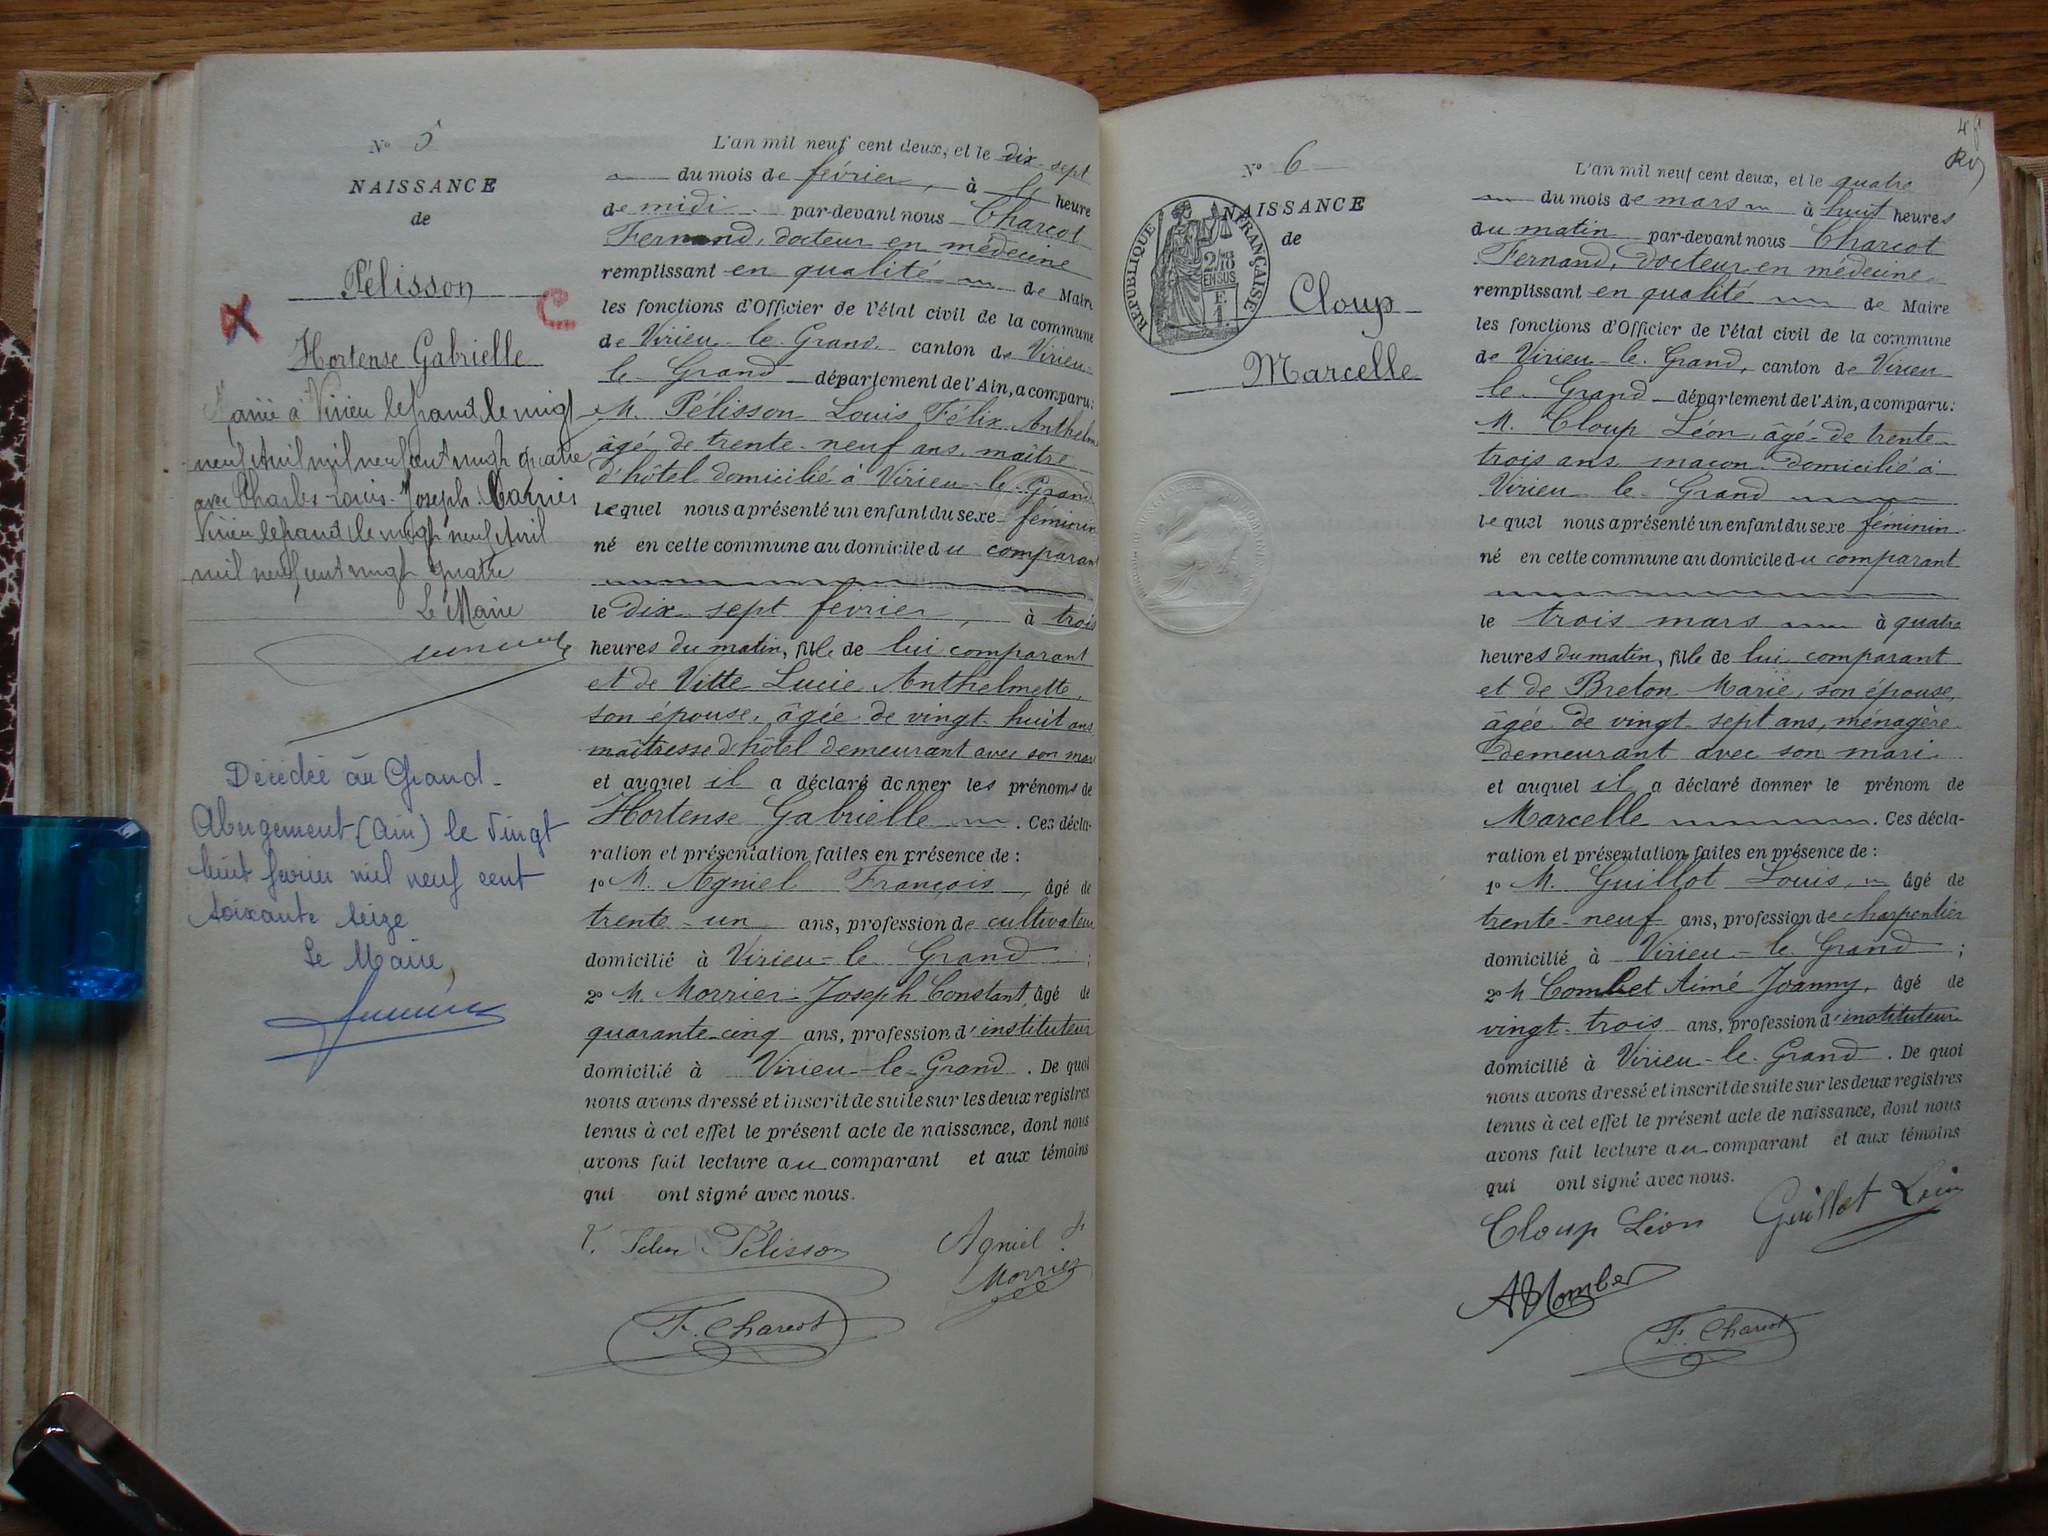 N° 5
NAISSANCE
de
Pélisson
C
Hortense Gabrielle
Mariée à Virieu le Grand le vingt
neuf Avril mil neuf cent vingt quatre
avec Charles Louis Joseph
Virieu le Grand le vingt neuf Avril
mil neuf cent vingt quatre
Le Maire
Décédée au Grand-
Abergement (Ain) le vingt
huit février mil neuf cent
soixante seize
Le Maire,
L'an mil neuf cent deux, et le dix sept
du mois de février, à heure
de midi par-devant nous Charcot
Fernand, docteur en médecine
remplissant en qualité de Maire
les fonctions d'Officier de l'état civil de la commune
de Virieu-le-Grand canton de Virieu-
le-Grand département de l'Ain, a comparu:
M. Pélisson Louis Félix Anthelme
âgé de trente-neuf ans, maître
d'hôtel domicilié à Virieu-le-Grand
lequel nous a présenté un enfant du sexe féminin
né en cette commune au domicile du comparant
le dix sept février, à trois
heures du matin, fille de lui comparant
et de Vitte Lucie Anthelmette,
son épouse, âgée de vingt-huit ans
maîtresse d'hôtel demeurant avec son mari
et auquel il a déclaré donner les prénoms de
Hortense Gabrielle. Ces décla-
ration et présentation faites en présence de :
1° M. Agniel François, âgé de
trente-un ans, profession de cultivateur
domicilié à Virieu-le-Grand ;
2° M. Morrier Joseph Constant, âgé de
quarante-cinq ans, profession d'instituteur
domicilié à Virieu-le-Grand. De quoi
nous avons dressé et inscrit de suite sur les deux registres
tenus à cet effet le présent acte de naissance, dont nous
avons fait lecture au comparant et aux témoins
qui ont signé avec nous.
Pélisson Agniel F
Morrier
F. Charcot
N° 6
NAISSANCE
de
RÉPUBLIQUE FRANÇAISE
2/10
EN SUS
Cloup
Marcelle
L'an mil neuf cent deux, et le quatre
du mois de mars à huit heures
du matin par-devant nous Charcot
Fernand, docteur en médecine
remplissant en qualité de Maire
les fonctions d'Officier de l'état civil de la commune
de Virieu-le-Grand, canton de Virieu
le-Grand département de l'Ain, a comparu:
M. Cloup Léon, âgé de trente-
trois ans maçon domicilié à
Virieu le Grand
lequel nous a présenté un enfant du sexe féminin
né en cette commune au domicile du comparant
le trois mars à quatre
heures du matin, fille de lui comparant
et de Breton Marie, son épouse,
âgée de vingt-sept ans, ménagère
demeurant avec son mari
et auquel il a déclaré donner le prénom de
Marcelle. Ces décla-
ration et présentation faites en présence de :
1° M. Guillot Louis, âgé de
trente-neuf ans, profession de charpentier
domicilié à Virieu-le-Grand ;
2° M Combet Aimé Joanny, âgé de
vingt-trois ans, profession d'instituteur
domicilié à Virieu-le-Grand. De quoi
nous avons dressé et inscrit de suite sur les deux registres
tenus à cet effet le présent acte de naissance, dont nous
avons fait lecture au comparant et aux témoins
qui ont signé avec nous.
Cloup Léon Guillot Louis
F. Charcot